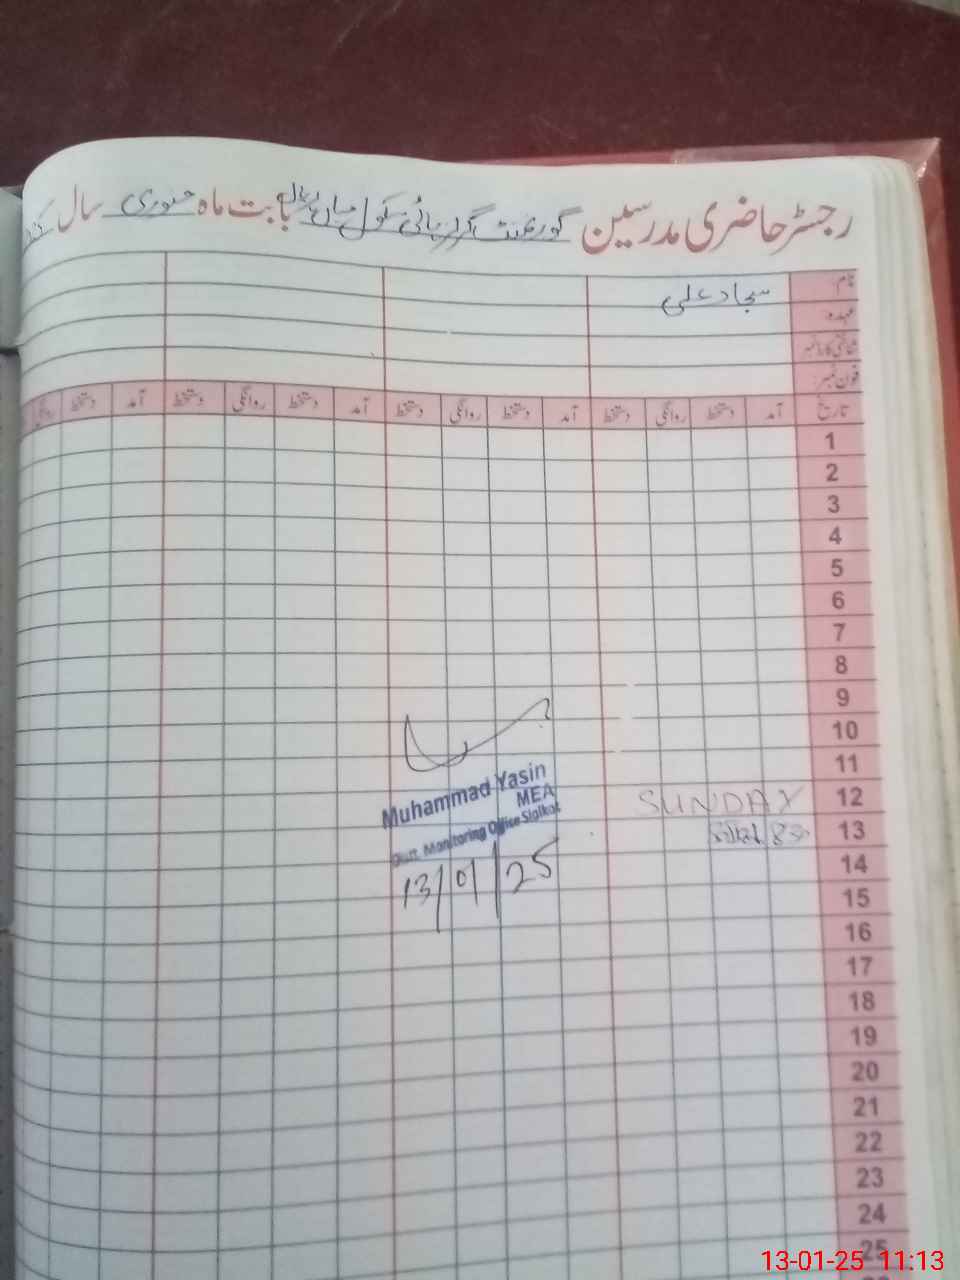 رجسٹر حاضری مدرسین گورنمنٹ گرلز ہائی سکول میاں بابت ماہ جنوری سال
نام: سجاد علی
عہدہ:
شناختی کارڈ نمبر
فون نمبر:
تاریخ آمد دستخط روانگی دستخط آمد دستخط روانگی دستخط آمد دستخط روانگی دستخط آمد دستخط روانگی
1
2
3
4
5
6
7
8
9
10
11
12 SUNDAY
13
14
15
16
17
18
19
20
21
22
23
24
25
Muhammad Yasin
MEA
Distt. Monitoring Office Sialkot
13/01/25
13-01-25 11:13